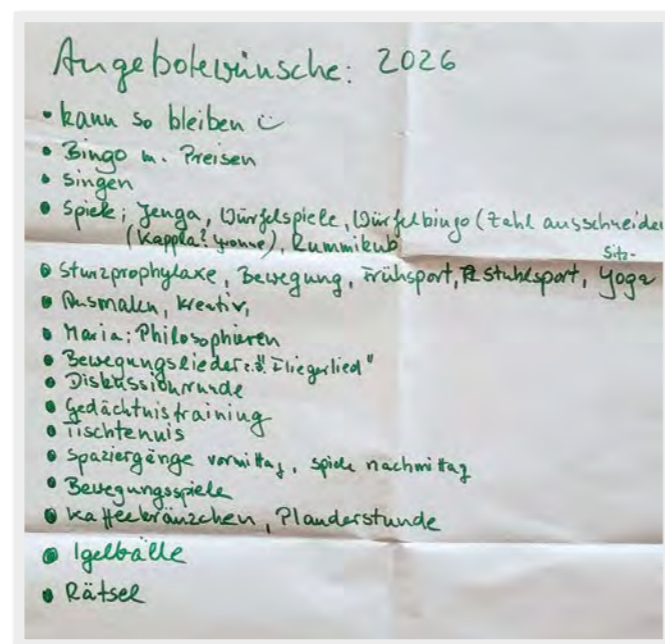 Angebotewünsche: 2026
• kann so bleiben ü
• Bingo m. Preisen
• singen
• Spiele; Jenga, Würfelspiele, Würfelbingo (Zahl ausschneiden
(Kappla? Yvonne), Rummikub
Sitz-
• Sturzprophylaxe, Bewegung, Frühsport, Stuhlsport, Yoga
• Ausmalen, kreativ,
• Maria; Philosophieren
• Bewegungslieder z.B. "Fliegerlied"
• Diskussionrunde
• Gedächtnistraining
• Tischtennis
• Spaziergänge vormittag, spiele nachmittag
• Bewegungsspiele
• Kaffeekränzchen, Plauderstunde
• Igelbälle
• Rätsel